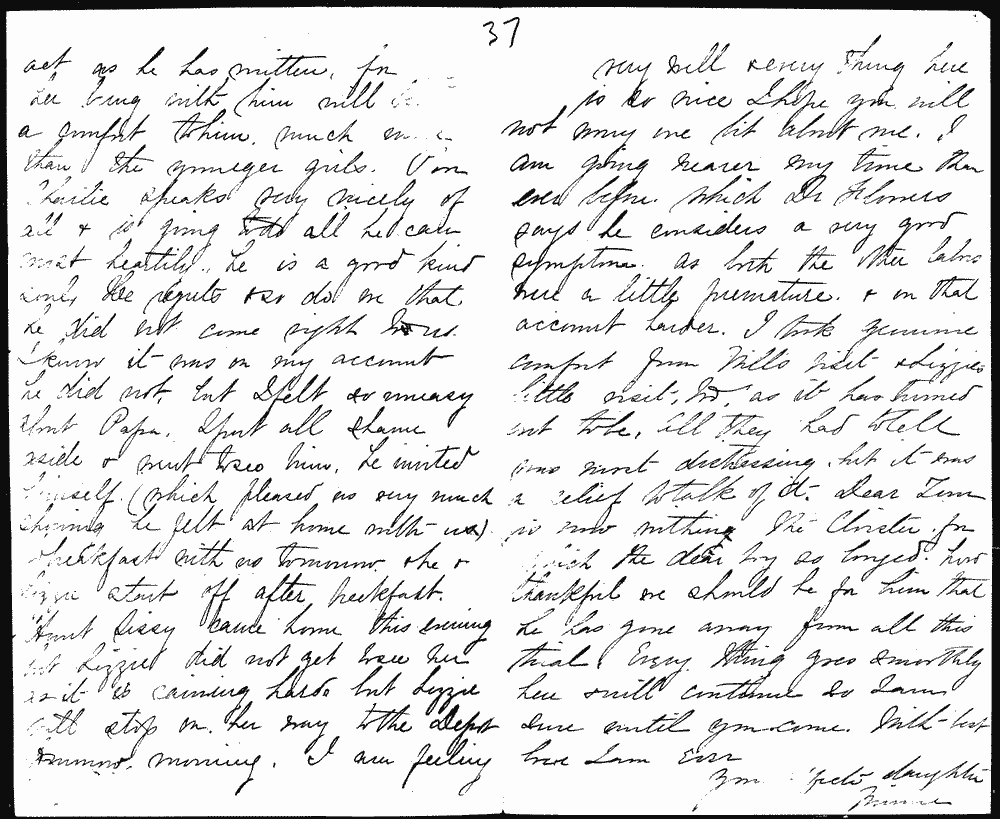 37
act as he has written, for
her being with him will be
a comfort to him, much more
than the younger girls. Von
Charlie speaks very nicely of
all & is going to do all he can
most heartily. he is a good kind
soul, He regrets & so do we that
he did not come right to us.
I know it was on my account
he did not, but I felt so uneasy
about Papa, I put all shame
aside & went to see him, he invited
himself (which pleased us very much
showing he felt at home with us)
breakfast with us tomorrow & he &
Lizzie start off after breakfast.
Aunt Sissy came home this evening
but Lizzie did not get to see her
as it is raining hard, but Lizzie
will stop on her way to the depot
tomorrow, morning. I am feeling
very well & every thing here
is so nice I hope you will
not worry one bit about me. I
am going nearer my time than
ever before. which Dr Flowers
says he considers a very good
symptom. as both the other babies
were a little premature. & on that
account harder. I took genuine
comfort from Will's visit & Lizzie's
little visit, too, as it has turned
out to be, all they had to tell
was most distressing. but it was
a relief to talk of it. Dear Tom
is now nothing the Cloister, for
which the dear boy so longed. how
thankful we should be for him that
he has gone away from all this
trial. Every thing goes smoothly
here & will continue so I am
sure until you come. With best
love I am Ever
Your daughter
Minnie